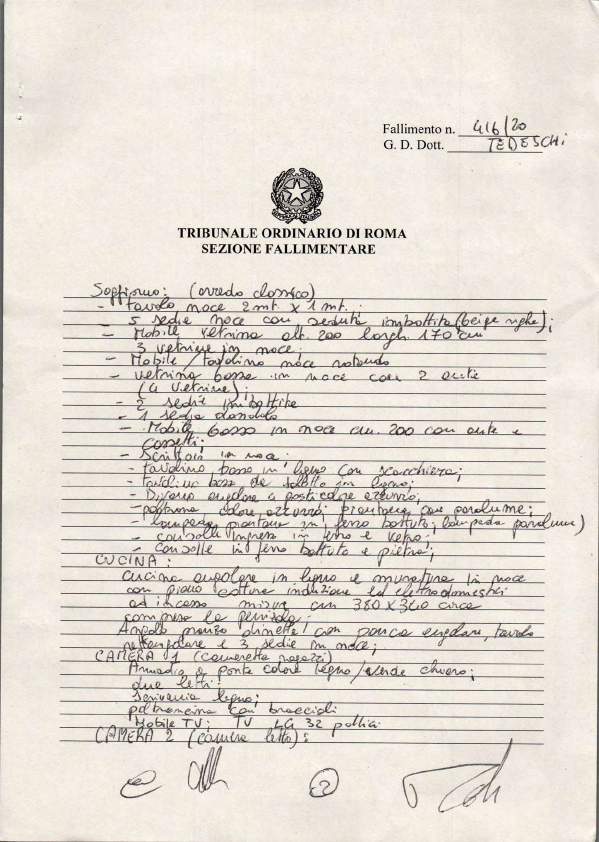 Fallimento n. 416/20
G. D. Dott. TEDESCHI
TRIBUNALE ORDINARIO DI ROMA
SEZIONE FALLIMENTARE
Soggiorno: (arredo classico)
- tavolo noce 2 mt. x 1 mt.
- 5 sedie noce con seduta imbottita (beige righe);
- Mobile vetrina alt. 200 largh. 170 cm
3 vetrine in noce;
- Mobile / tavolino noce rotondo
- vetrina bassa in noce con 2 ante
(4 vetrine);
- 2 sedie imbottite
- 1 sedia dondolo
- Mobile basso in noce cm. 200 con ante e
cassetti;
- Scrittoio in noce;
- tavolino basso in legno con scacchiera;
- tavolino basso da salotto in legno;
- Divano angolare 6 posti colore azzurro;
- poltrona colore azzurro; con paralume;
- lampada piantana in ferro battuto; lampada paralume)
- consolle in ferro e vetro;
- Consolle in ferro battuto e pietra;
CUCINA:
cucina angolare in legno e muratura in noce
con piano cottura induzione ed elettrodomestici
ad incasso misure cm 380 x 340 circa
compresa la penisola;
Angolo pranzo con panca angolare, tavolo
rettangolare e 3 sedie in noce;
CAMERA 1 (cameretta ragazzi)
Armadio 6 ante colore legno/verde chiaro;
due letti;
Scrivania legno;
poltroncina con braccioli
Mobile TV; TV LG 32 pollici
CAMERA 2 (camera letto):